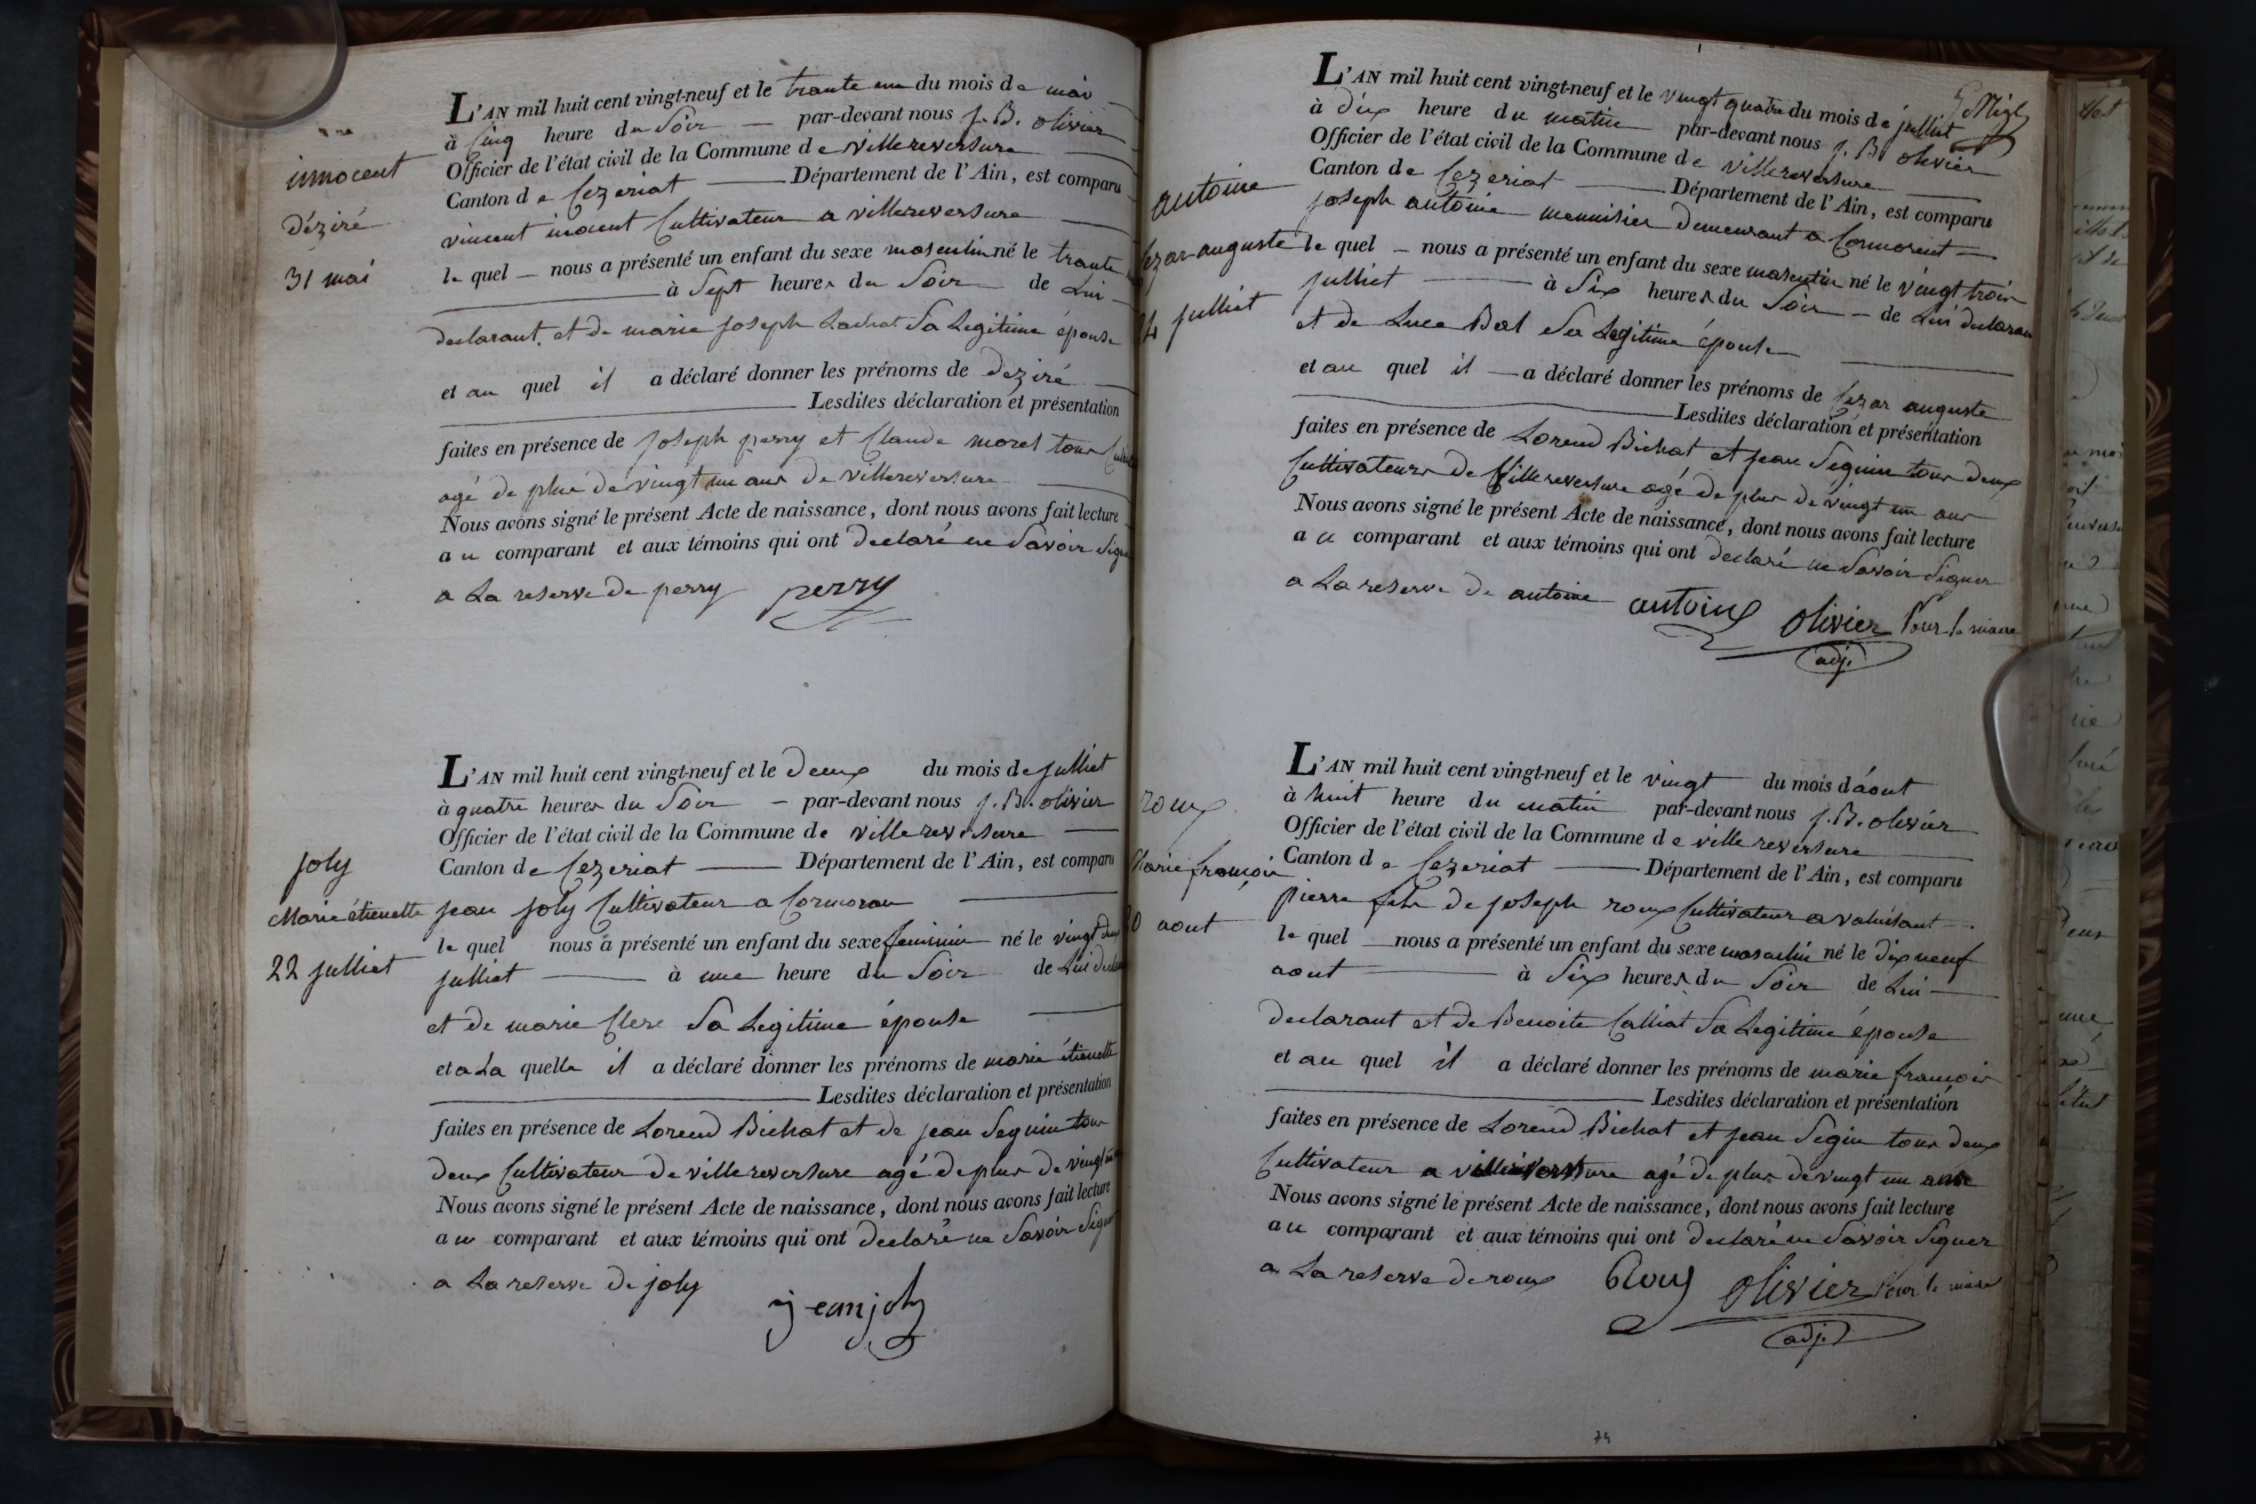 innocent
déziré
31 mai
L'AN mil huit cent vingt-neuf et le trante un du mois de mai
à cinq heure du Soir par-devant nous J. B. olivier
Officier de l'état civil de la Commune de villereversure
Canton de Cezeriat Département de l'Ain, est comparu
vincent inocent Cultivateur a villereversure
le quel nous a présenté un enfant du sexe masculin né le trante
à Sept heures du Soir de Lui
declarant et de marie joseph Lachat Sa Legitime épouse
et au quel il a déclaré donner les prénoms de déziré
Lesdites déclaration et présentation
faites en présence de joseph perry et Claude morel tous
agé de plus de vingt un ans de villereversure
Nous avons signé le présent Acte de naissance, dont nous avons fait lecture
au comparant et aux témoins qui ont declaré ne Savoir Signer
a La reserve de perry perry
joly
Marie étienette
22 julliet
L'AN mil huit cent vingt-neuf et le deux du mois de julliet
à quatre heures du Soir par-devant nous J. B. olivier
Officier de l'état civil de la Commune de villereversure
Canton de Cezeriat Département de l'Ain, est comparu
jean joly Cultivateur a Cormoran
le quel nous a présenté un enfant du sexe feminin né le vingt deux
julliet à une heure du Soir de Lui
et de marie Clere Sa Legitime épouse
et a La quelle il a déclaré donner les prénoms de marie étienette
Lesdites déclaration et présentation
faites en présence de Lorend Bichat et de jean Seguin tous
deux Cultivateur de villereversure agé de plus de vingt un
Nous avons signé le présent Acte de naissance, dont nous avons fait lecture
au comparant et aux témoins qui ont declaré ne Savoir Signer
a La reserve de joly
jean joly
antoine
Cezar auguste
24 julliet
L'AN mil huit cent vingt-neuf et le vingt quatre du mois de julliet
à dix heure du matin par-devant nous J. B. olivier
Officier de l'état civil de la Commune de villereversure
Canton de Cezeriat Département de l'Ain, est comparu
joseph antoine menuisier demeurant a Cormorent
le quel nous a présenté un enfant du sexe masculin né le vingt trois
julliet à Six heures du Soir de Lui declarant
et de Luce Bal Sa Legitime épouse
et au quel il a déclaré donner les prénoms de Cezar auguste
Lesdites déclaration et présentation
faites en présence de Lorend Bichat et jean Seguin tous deux
Cultivateurs de Villereversure agé de plus de vingt un ans
Nous avons signé le présent Acte de naissance, dont nous avons fait lecture
au comparant et aux témoins qui ont declaré ne Savoir Signer
a La reserve de antoine antoine olivier Pour le maire
adj.
roux
Marie françois
20 aout
L'AN mil huit cent vingt-neuf et le vingt du mois d'aout
à huit heure du matin par-devant nous J. B. olivier
Officier de l'état civil de la Commune de villereversure
Canton de Cezeriat Département de l'Ain, est comparu
pierre de joseph roux Cultivateur a valuisant
le quel nous a présenté un enfant du sexe masculin né le dix neuf
aout à Six heures du Soir de Lui
declarant et de Benoite Calliat Sa Legitime épouse
et au quel il a déclaré donner les prénoms de marie françois
Lesdites déclaration et présentation
faites en présence de Lorend Bichat et jean Segin tous deux
Cultivateur a villereversure agé de plus de vingt un ans
Nous avons signé le présent Acte de naissance, dont nous avons fait lecture
au comparant et aux témoins qui ont declaré ne Savoir Signer
a La reserve de roux Roux olivier Pour le maire
adj.
74